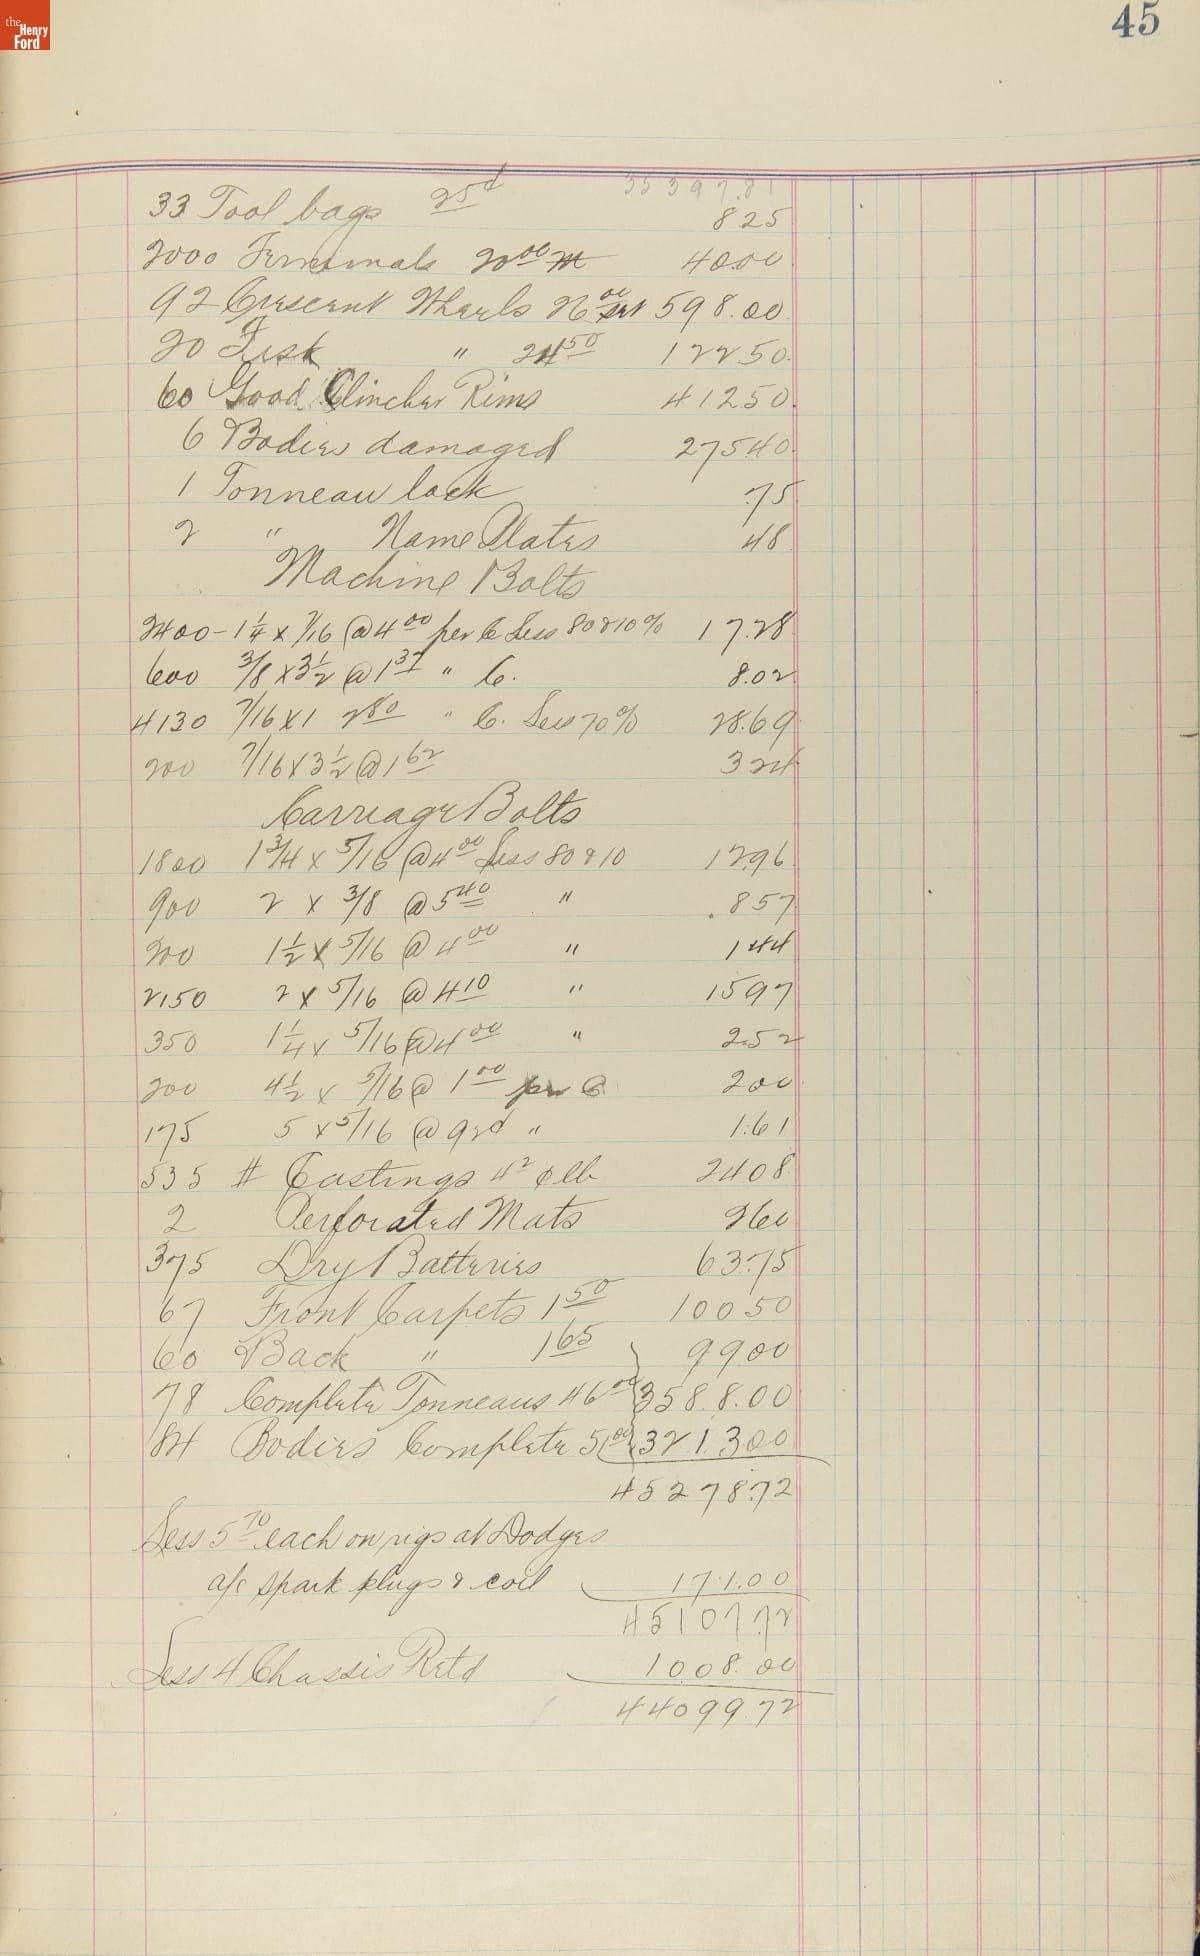 the
Henry
Ford
45
35 397.81
33 Tool bags 25¢ 825
2000 Terminals 20 00 M 40.00
92 Crescent Wheels 26 00 set 598.00
20 Fisk " 24 50 122 50
60 Good Clincher Rims 412 50
6 Bodies damaged 275 40
1 Tonneau lock .75
2 " Name Plates 48
Machine Bolts
2400 - 1 1/4 x 7/16 @ 4 00 per C Less 80 & 10% 17.28
600 3/8 x 3 1/2 @ 1 37 " C. 8.02
4130 7/16 x 1 2 80 " C. Less 70% 28.69
200 7/16 x 3 1/2 @ 1 62 3 24
Carriage Bolts
1800 1 3/4 x 5/16 @ 4 00 Less 80 & 10 12 96
900 2 x 3/8 @ 5 40 " .857
200 1 1/2 x 5/16 @ 4 00 " 1 44
2150 2 x 5/16 @ 4 10 " 15 97
350 1 1/4 x 5/16 @ 4 00 " 2.52
200 4 1/2 x 5/16 @ 1 00 per C 2 00
175 5 x 5/16 @ 92¢ " 1.61
535 # Castings 4 2 ¢ lb 24 08
2 Perforated Mats 2 60
375 Dry Batteries 63.75
67 Front Carpets 1 50 100 50
60 Back " 1 65 99 00
78 Complete Tonneaus 46 00 3588.00
84 Bodies Complete 51 00 3213 00
45278.72
Less 5 70 each on rigs at Dodges
a/c spark plugs & coil 171.00
45107.72
Less 4 Chassis Retd 1008.00
44099.72